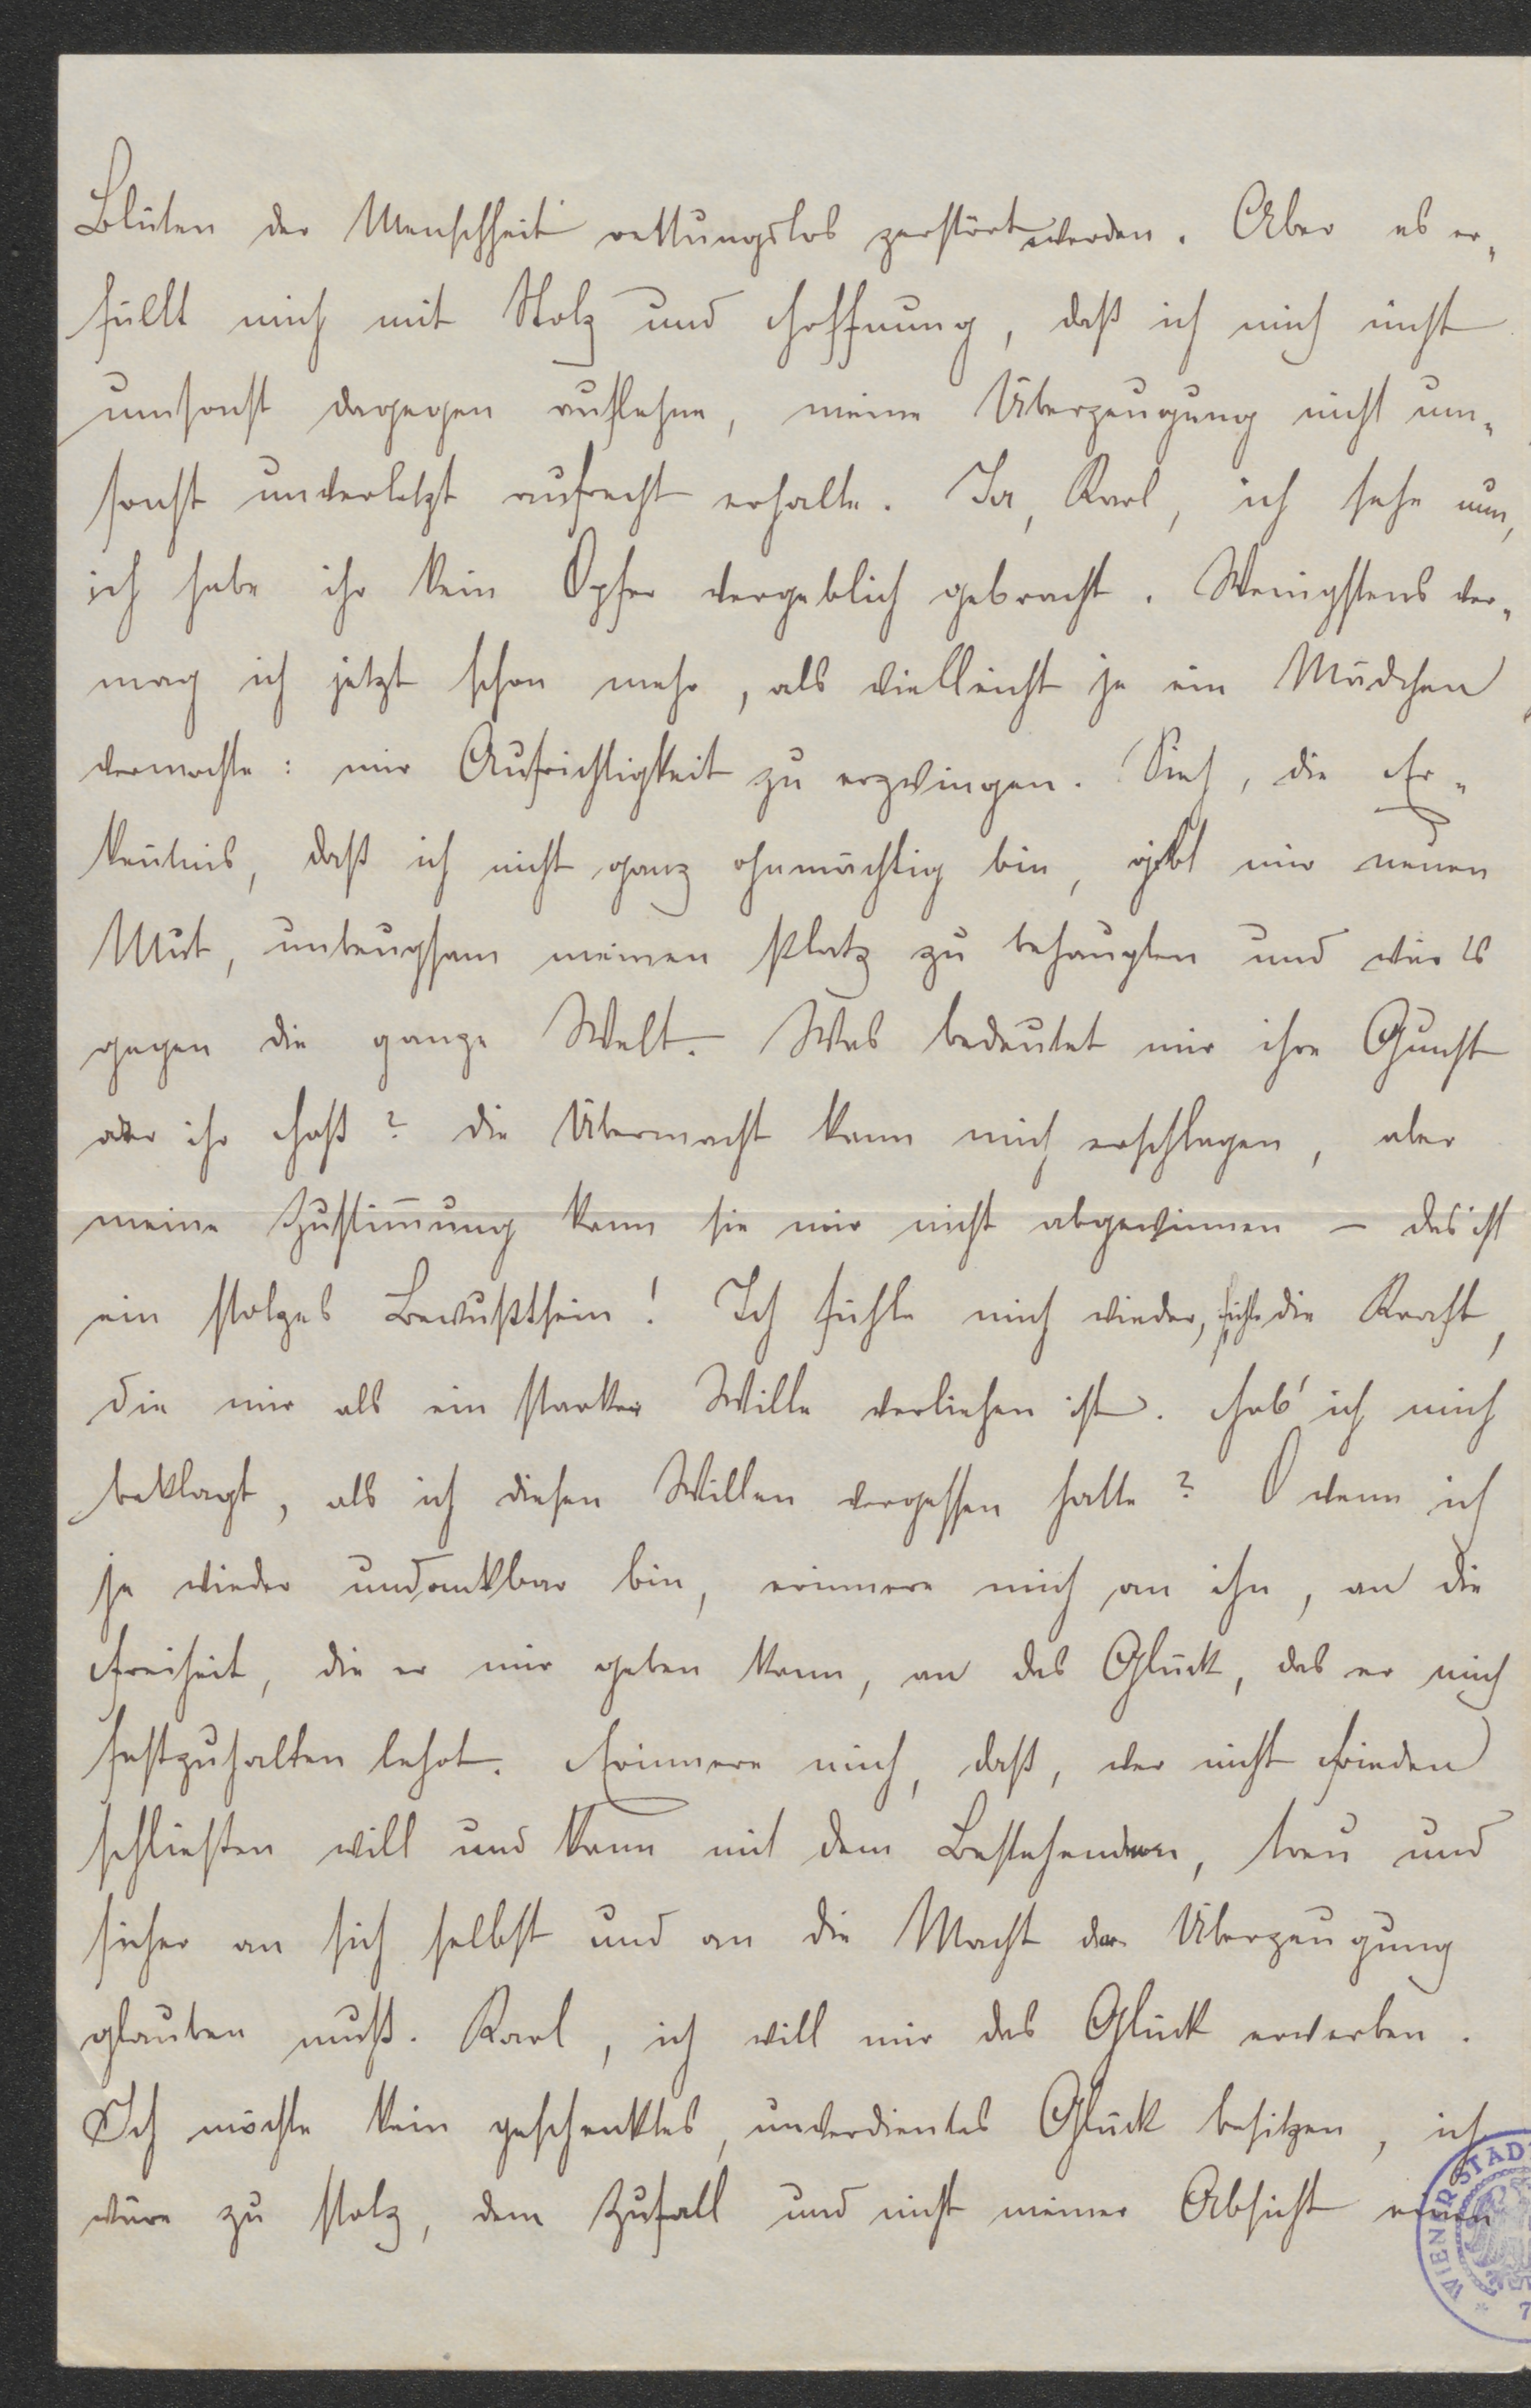 Blüten der Menschheit rettungslos zerstört werden. Aber es er„
füllt mich mit Stolz und Hoffnung, daß ich mich nicht
umsonst dagegen auflehne, meine Überzeugung nicht um„
sonst unverletzt aufrecht erhalte. Ja, Karl, ich sehe nun,
ich habe ihr kein Opfer vergeblich gebracht. Wenigstens ver„
mag ich jetzt schon mehr, als vielleicht je ein Mädchen
vermochte: mir Aufrichtigkeit zu erzwingen. Sieh, die Er„
kentnis, daß ich nicht ganz ohnmächtig bin, gibt mir neuen
Mut, unbeugsam meinen Platz zu behaupten und wär es
gegen die ganze Welt. Was bedeutet mir ihre Gunst
oder ihr Haß? die Übermacht kann mich erschlagen, aber
meine Zustim̄ung kann sie mir nicht abgewinnen – das ist
ein stolzes Bewußtsein! Ich fühle mich wieder, fühle die Kraft,
die mir als ein starker Wille verliehen ist. Hab' ich mich
beklagt, als ich diesen Willen vergessen hatte? O wenn ich
je wieder undankbar bin, erinnere mich an ihn, an die
Freiheit, die er mir geben kann, an das Glück, das er mich
festzuhalten lehrt. Erinnere mich, daß, wer nicht Frieden
schließen will und kann mit dem Bestehenden, treu und
sicher an sich selbst und an die Macht der Überzeugung
glauben muß. Karl, ich will mir das Glück erwerben.
Ich möchte kein geschenktes, unverdientes Glück besitzen, ich
wäre zu stolz, dem Zufall und nicht meiner Absicht einen
WIENER STAD
7